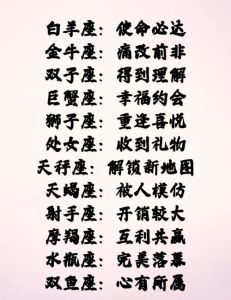 白羊座：使命必达
金牛座：痛改前非
双子座：得到理解
巨蟹座：幸福约会
狮子座：重逢喜悦
处女座：收到礼物
天秤座：解锁新地图
天蝎座：被人模仿
射手座：开销较大
摩羯座：互利共赢
水瓶座：完美落幕
双鱼座：心有所属